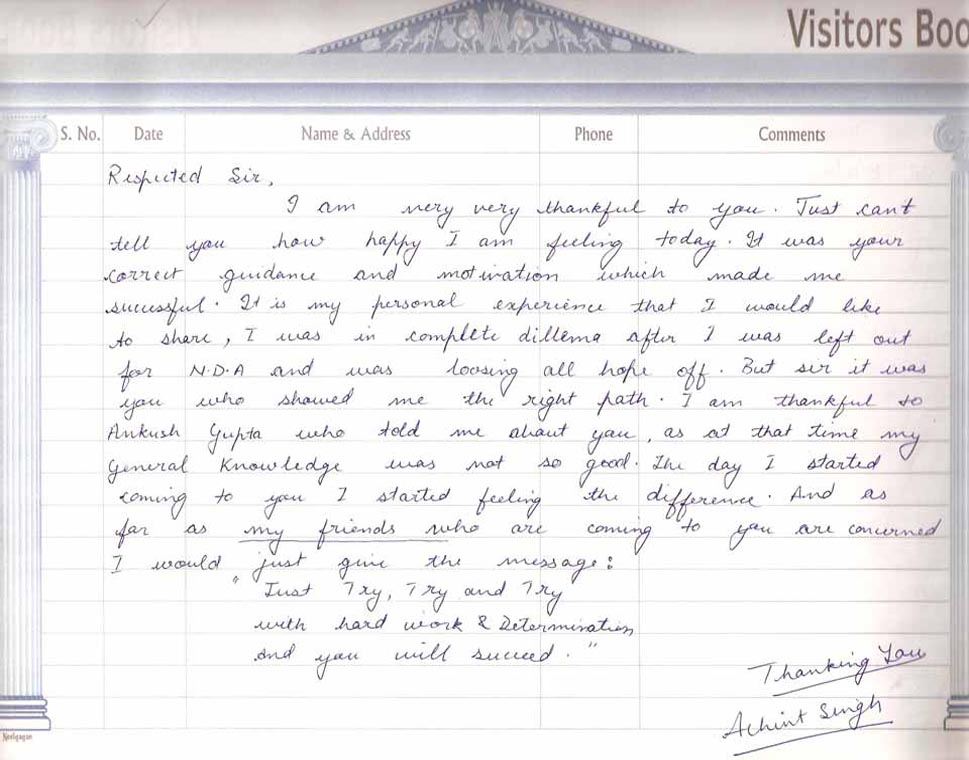 Visitors Boo
S. No. Date Name & Address Phone Comments
Respected Sir,
I am very very thankful to you. Just can't
tell you how happy I am feeling today. It was your
correct guidance and motivation which made me
successful. It is my personal experience that I would like
to share, I was in complete dillema after I was left out
for N.D.A and was loosing all hope off. But sir it was
you who showed me the right path. I am thankful to
Ankush Gupta who told me about you, as at that time my
General Knowledge was not so good. The day I started
coming to you I started feeling the difference. And as
far as my friends who are coming to you are concerned
I would just give the message:
"Just Try, Try and Try
with hard work & Determination
And you will succeed."
Thanking You
Achint Singh
Neelgagan